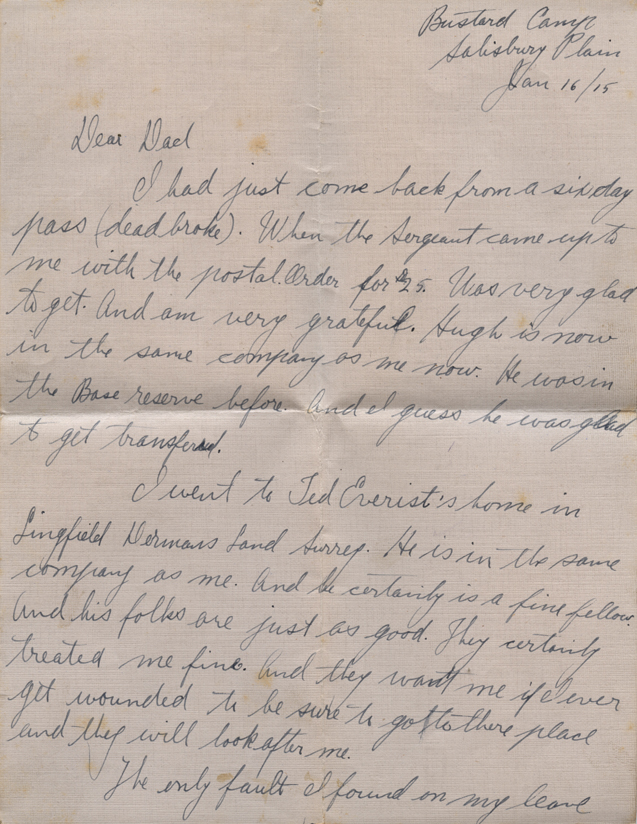 Bustard Camp
Salisbury Plain
Jan 16/15
Dear Dad
I had just come back from a six day
pass (dead broke). When the Sergeant came up to
me with the postal Order for $25. Was very glad
to get. And am very grateful. Hugh is now
in the same company as me now. He was in
the Base reserve before. And I guess he was glad
to get transferd.
I went to Ted Everist's home in
Lingfield Dermans Land Surrey. He is in the same
company as me. And he certainly is a fine fellow.
And his folks are just as good. They certainly
treated me fine. And they want me if I ever
get wounded to be sure to go to there place
and they will look after me.
The only fault I found on my leave